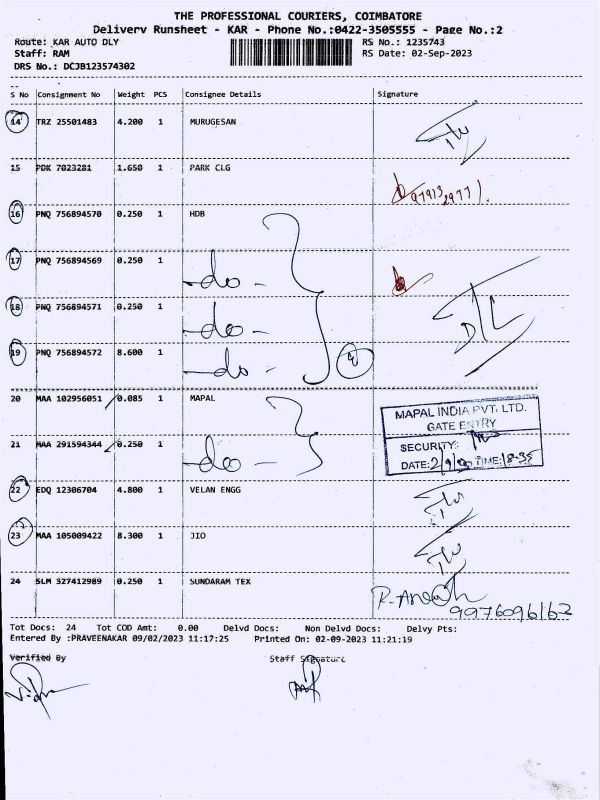 THE PROFESSIONAL COURIERS, COIMBATORE
Delivery Runsheet - KAR - Phone No.:0422-3505555 - Page No.:2
Route: KAR AUTO DLY RS No.: 1235743
Staff: RAM RS Date: 02-Sep-2023
DRS No.: DCJB123574302
S No Consignment No Weight PCS Consignee Details Signature
14 TRZ 25501483 4.200 1 MURUGESAN
15 PDK 7023281 1.650 1 PARK CLG
16 PNQ 756894570 0.250 1 HDB
17 PNQ 756894569 0.250 1 -do-
18 PNQ 756894571 0.250 1 -do-
19 PNQ 756894572 8.600 1 -do- 4
20 MAA 102956051 0.085 1 MAPAL
MAPAL INDIA PVT. LTD.
GATE ENTRY
21 MAA 291594344 0.250 1 -do-
SECURITY:
DATE: 2/9/ TIME: 18-35
22 EDQ 12306704 4.800 1 VELAN ENGG
23 MAA 105009422 8.300 1 JIO
24 SLM 327412989 0.250 1 SUNDARAM TEX
Tot Docs: 24 Tot COD Amt: 0.00 Delvd Docs: Non Delvd Docs: Delvy Pts:
Entered By :PRAVEENAKAR 09/02/2023 11:17:25 Printed On: 02-09-2023 11:21:19
Verified By Staff Signature